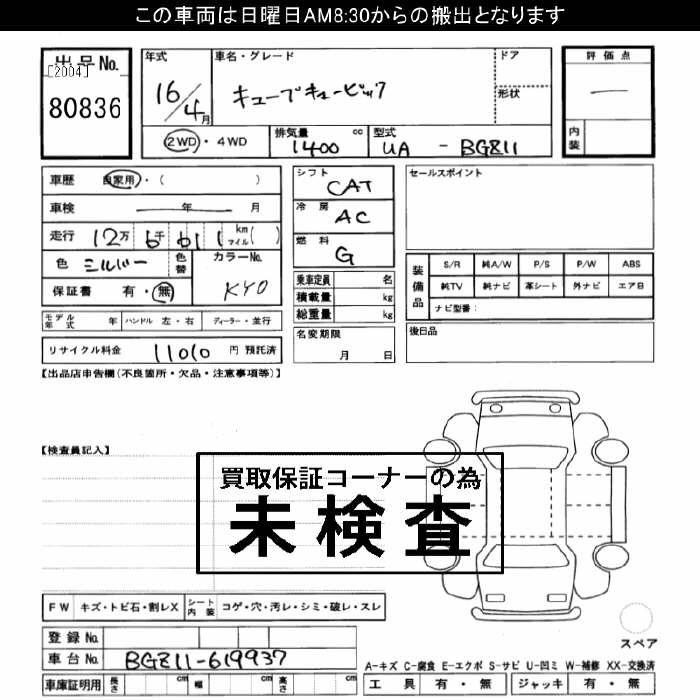 この車両は日曜日AM8:30からの搬出となります
出品No.
[2004]
80836
年式
16/4月
車名・グレード
キューブキュービック
ドア
形状
評価点
—
内装
2WD・4WD
排気量 1400 cc
型式 UA - BGZ11
車歴 自家用・( )
車検 年 月
走行 12万6千611 km マイル( )
色 シルバー 色替
カラーNo. KY0
保証書 有・無
モデル年式 年 ハンドル 左・右 ディーラー・並行
リサイクル料金 11010 円 預託済
シフト CAT
冷房 AC
燃料 G
乗車定員 名
積載量 kg
総重量 kg
名変期限
月 日
セールスポイント
装備品
S/R 純A/W P/S P/W ABS
純TV 純ナビ 革シート 外ナビ エアB
ナビ型番:
後日品
【出品店申告欄(不良箇所・欠品・注意事項等)】
【検査員記入】
買取保証コーナーの為
未検査
FW キズ・トビ石・割レX シート内装 コゲ・穴・汚レ・シミ・破レ・スレ
登録No.
車台No. BGZ11-619937
車庫証明用 長さ cm 幅 cm 高さ cm
スペア
A-キズ C-腐食 E-エクボ S-サビ U-凹ミ W-補修 XX-交換済
工具 有・無 ジャッキ 有・無